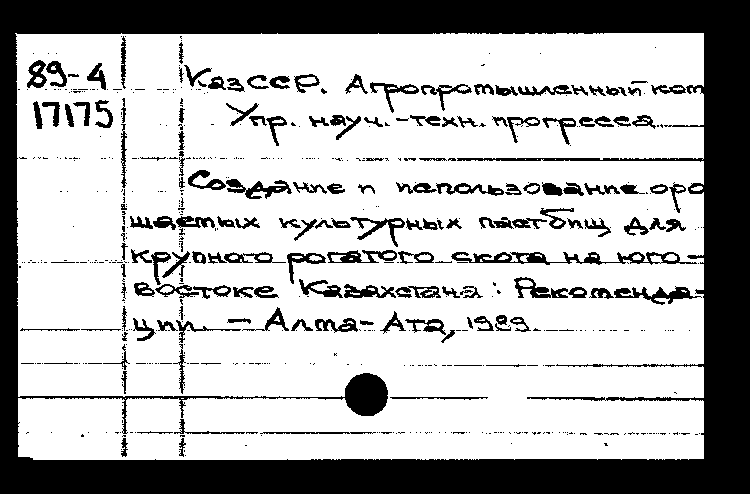 89-4
17175
КазССР. Агропромышленный ком
Упр. науч.-техн. прогресса
Создание и использование оро
шаемых культурных пастбищ для
крупного рогатого скота на юго-
востоке Казахстана: Рекоменда-
ции. - Алма-Ата, 1989.